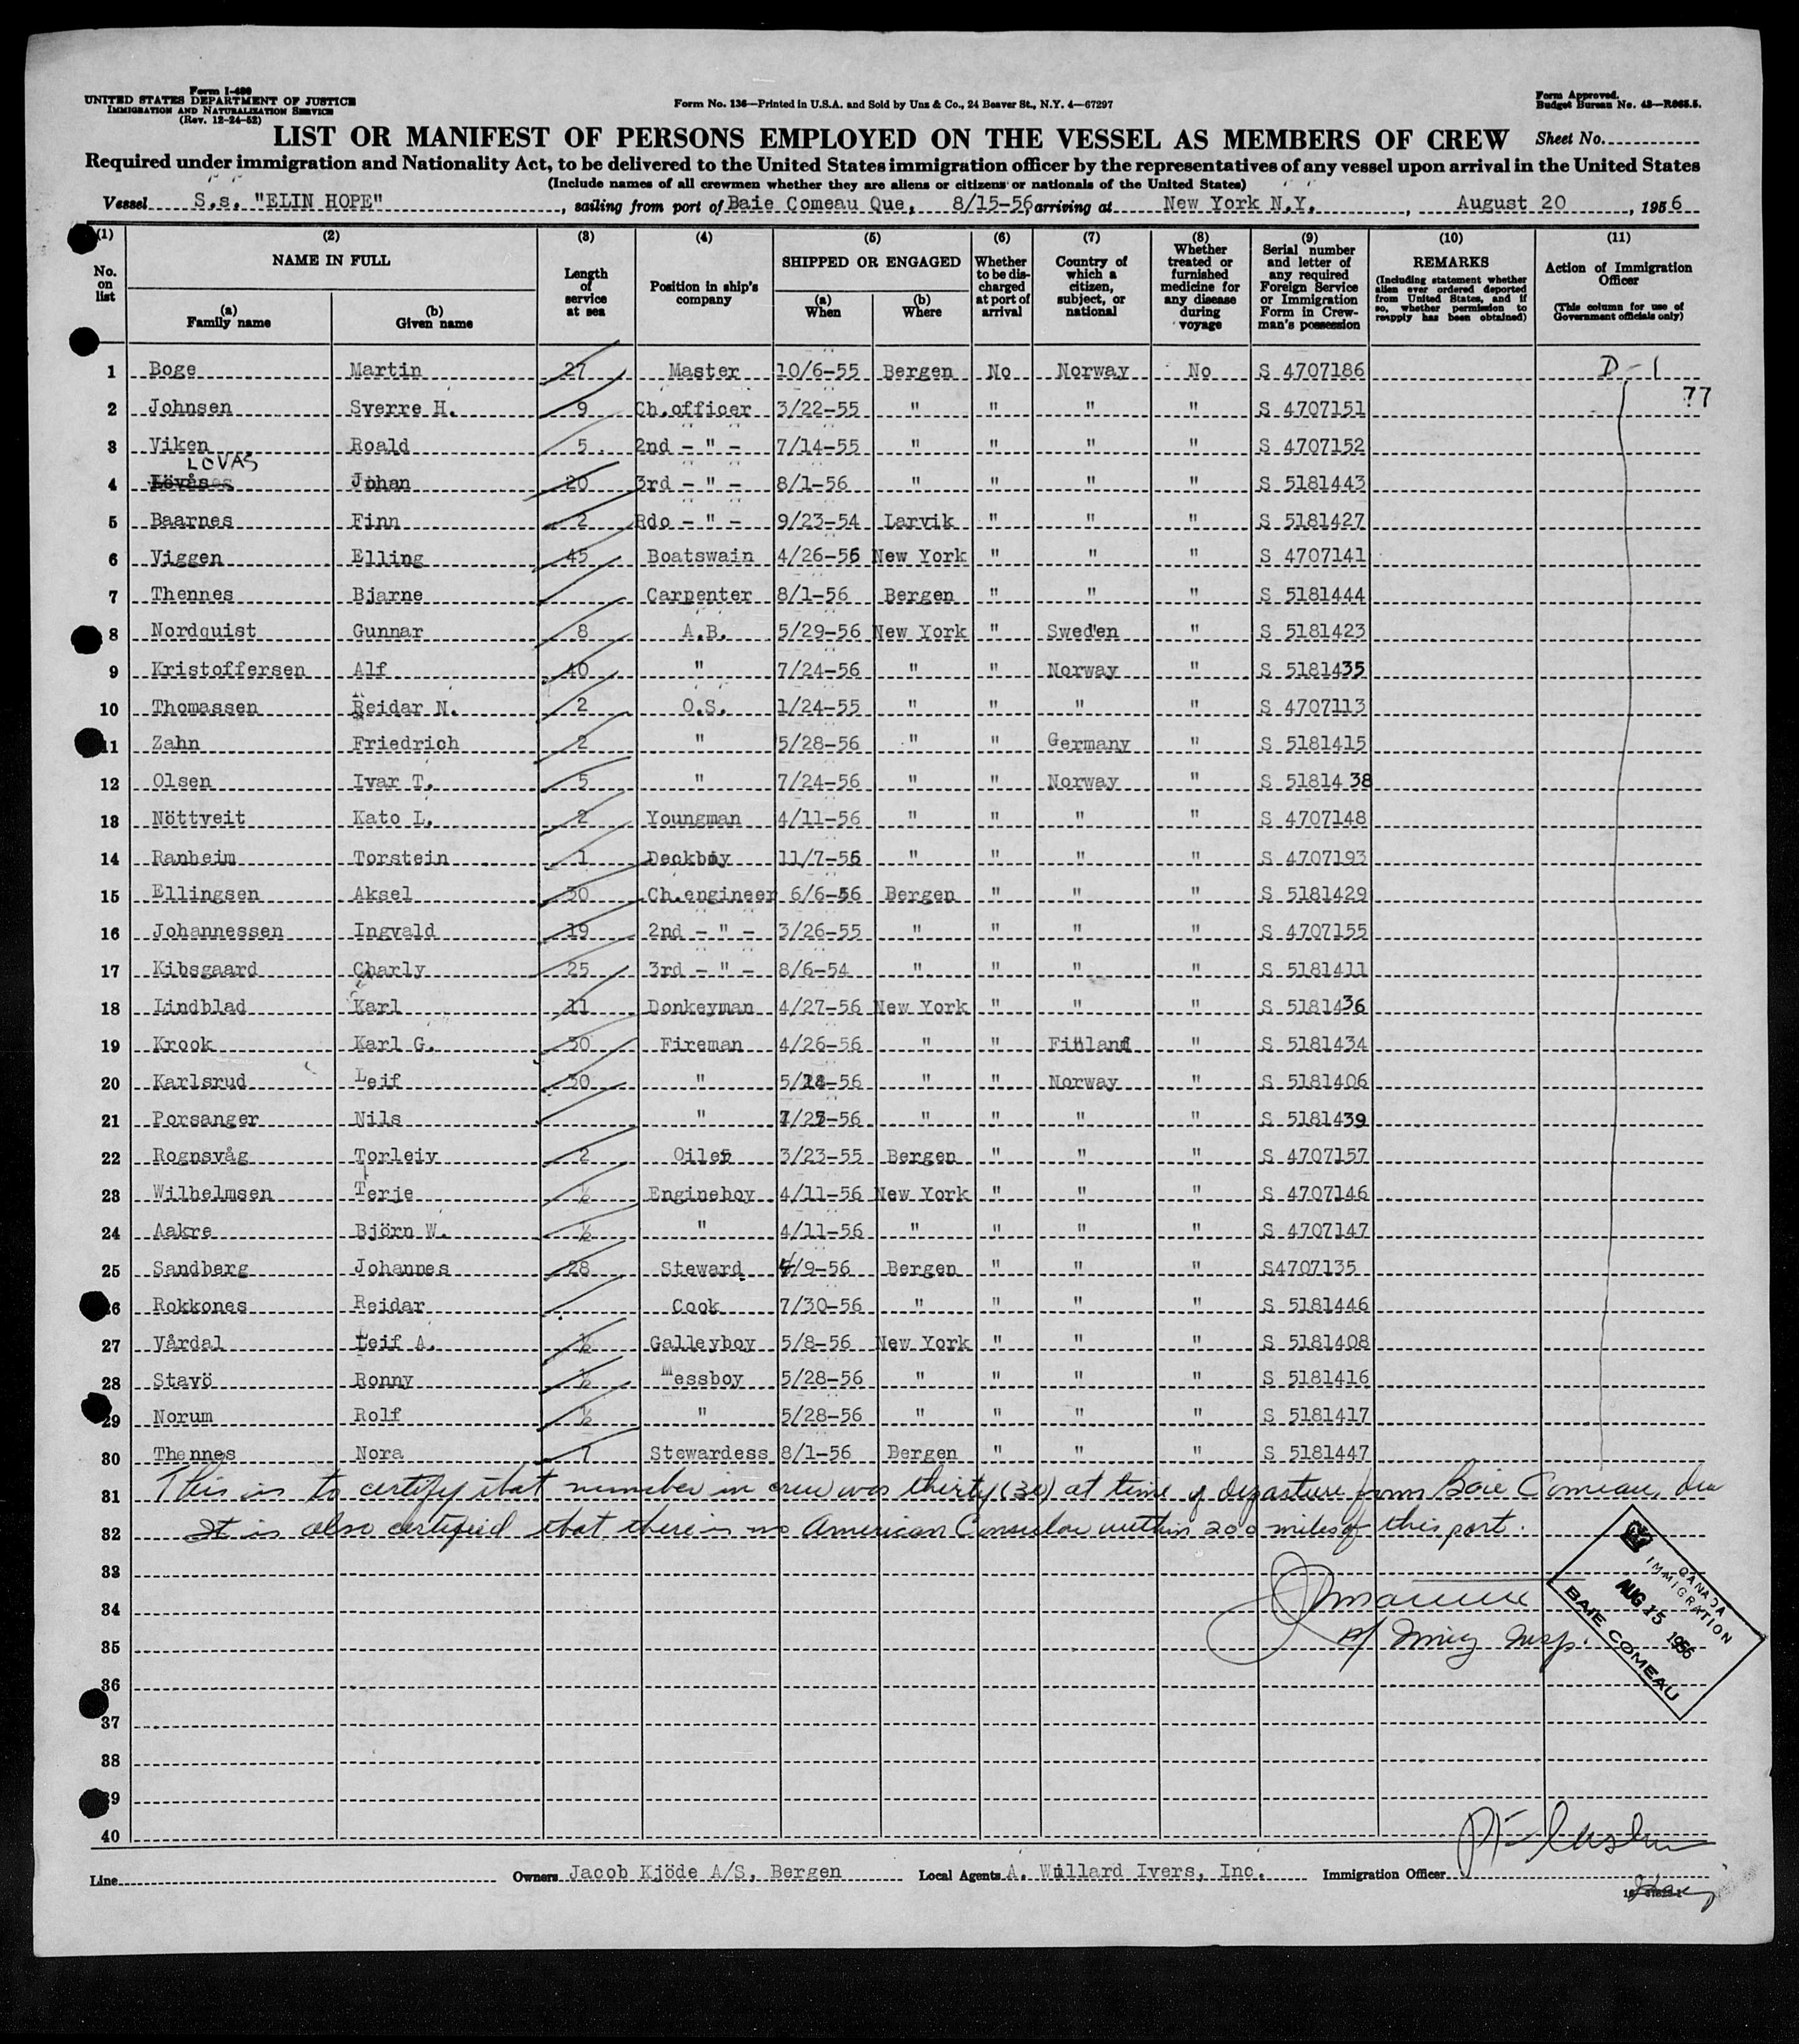 Form I-480
UNITED STATES DEPARTMENT OF JUSTICE
IMMIGRATION AND NATURALIZATION SERVICE
(Rev. 12-24-52)
Form No. 136—Printed in U.S.A. and Sold by Unz & Co., 24 Beaver St., N.Y. 4—67297
Form Approved.
Budget Bureau No. 43—R065.5.
LIST OR MANIFEST OF PERSONS EMPLOYED ON THE VESSEL AS MEMBERS OF CREW Sheet No.
Required under immigration and Nationality Act, to be delivered to the United States immigration officer by the representatives of any vessel upon arrival in the United States
(Include names of all crewmen whether they are aliens or citizens or nationals of the United States)
Vessel S.s. "ELIN HOPE", sailing from port of Baie Comeau Que, 8/15-56, arriving at New York N.Y., August 20, 1956
(1) (2) (3) (4) (5) (6) (7) (8) (9) (10) (11)
No. on list
NAME IN FULL
(a) Family name
(b) Given name
Length of service at sea
Position in ship's company
SHIPPED OR ENGAGED
(a) When
(b) Where
Whether to be discharged at port of arrival
Country of which a citizen, subject, or national
Whether treated or furnished medicine for any disease during voyage
Serial number and letter of any required Foreign Service or Immigration Form in Crewman's possession
REMARKS
(Including statement whether alien ever ordered deported from United States, and if so, whether permission to reapply has been obtained)
Action of Immigration Officer
(This column for use of Government officials only)
1 Boge Martin 27 Master 10/6-55 Bergen No Norway No S 4707186 D-1
77
2 Johnsen Sverre H. 9 Ch.officer 3/22-55 " " " " S 4707151
3 Viken Roald 5 2nd - " - 7/14-55 " " " " S 4707152
LOVAS
4 Lövåses Johan 20 3rd - " - 8/1-56 " " " " S 5181443
5 Baarnes Finn 2 Rdo - " - 9/23-54 Larvik " " " S 5181427
6 Viggen Elling 45 Boatswain 4/26-56 New York " " " S 4707141
7 Thennes Bjarne Carpenter 8/1-56 Bergen " " " S 5181444
8 Nordquist Gunnar 8 A.B. 5/29-56 New York " Sweden " S 5181423
9 Kristoffersen Alf 40 " 7/24-56 " " Norway " S 5181435
10 Thomassen Reidar N. 2 O.S. 1/24-55 " " " " S 4707113
11 Zahn Friedrich 2 " 5/28-56 " " Germany " S 5181415
12 Olsen Ivar T. 5 " 7/24-56 " " Norway " S 5181438
13 Nöttveit Kato L. 2 Youngman 4/11-56 " " " " S 4707148
14 Ranheim Torstein 1 Deckboy 11/7-56 " " " " S 4707193
15 Ellingsen Aksel 30 Ch.engineer 6/6-56 Bergen " " " S 5181429
16 Johannessen Ingvald 19 2nd - " - 3/26-55 " " " " S 4707155
17 Kibsgaard Charly 25 3rd - " - 8/6-54 " " " " S 5181411
18 Lindblad Karl 11 Donkeyman 4/27-56 New York " " " S 5181436
19 Krook Karl G. 30 Fireman 4/26-56 " " Finland " S 5181434
20 Karlsrud Leif 30 " 56 " " Norway " S 5181406
21 Porsanger Nils " 56 " " " " S 5181439
22 Rognsvåg Torleiv 2 Oiler 3/23-55 Bergen " " " S 4707157
23 Wilhelmsen Terje ½ Engineboy 4/11-56 New York " " " S 4707146
24 Aakre Björn W. ½ " 4/11-56 " " " " S 4707147
25 Sandberg Johannes 28 Steward 4/9-56 Bergen " " " S4707135
26 Rokkones Reidar Cook 7/30-56 " " " " S 5181446
27 Vårdal Leif A. ½ Galleyboy 5/8-56 New York " " " S 5181408
28 Stavö Ronny ½ Messboy 5/28-56 " " " " S 5181416
29 Norum Rolf ½ " 5/28-56 " " " " S 5181417
30 Thennes Nora 7 Stewardess 8/1-56 Bergen " " " S 5181447
31 This is to certify that number in crew was thirty (30) at time of departure from Baie Comeau,
32 It is also certified that there is no American Consular within 200 miles of this port.
33
34
35 Insp.
36
37
38
39
40
CANADA
IMMIGRATION
AUG 15 1956
BAIE COMEAU
Line Owners Jacob Kjöde A/S, Bergen Local Agents A. Willard Ivers, Inc. Immigration Officer